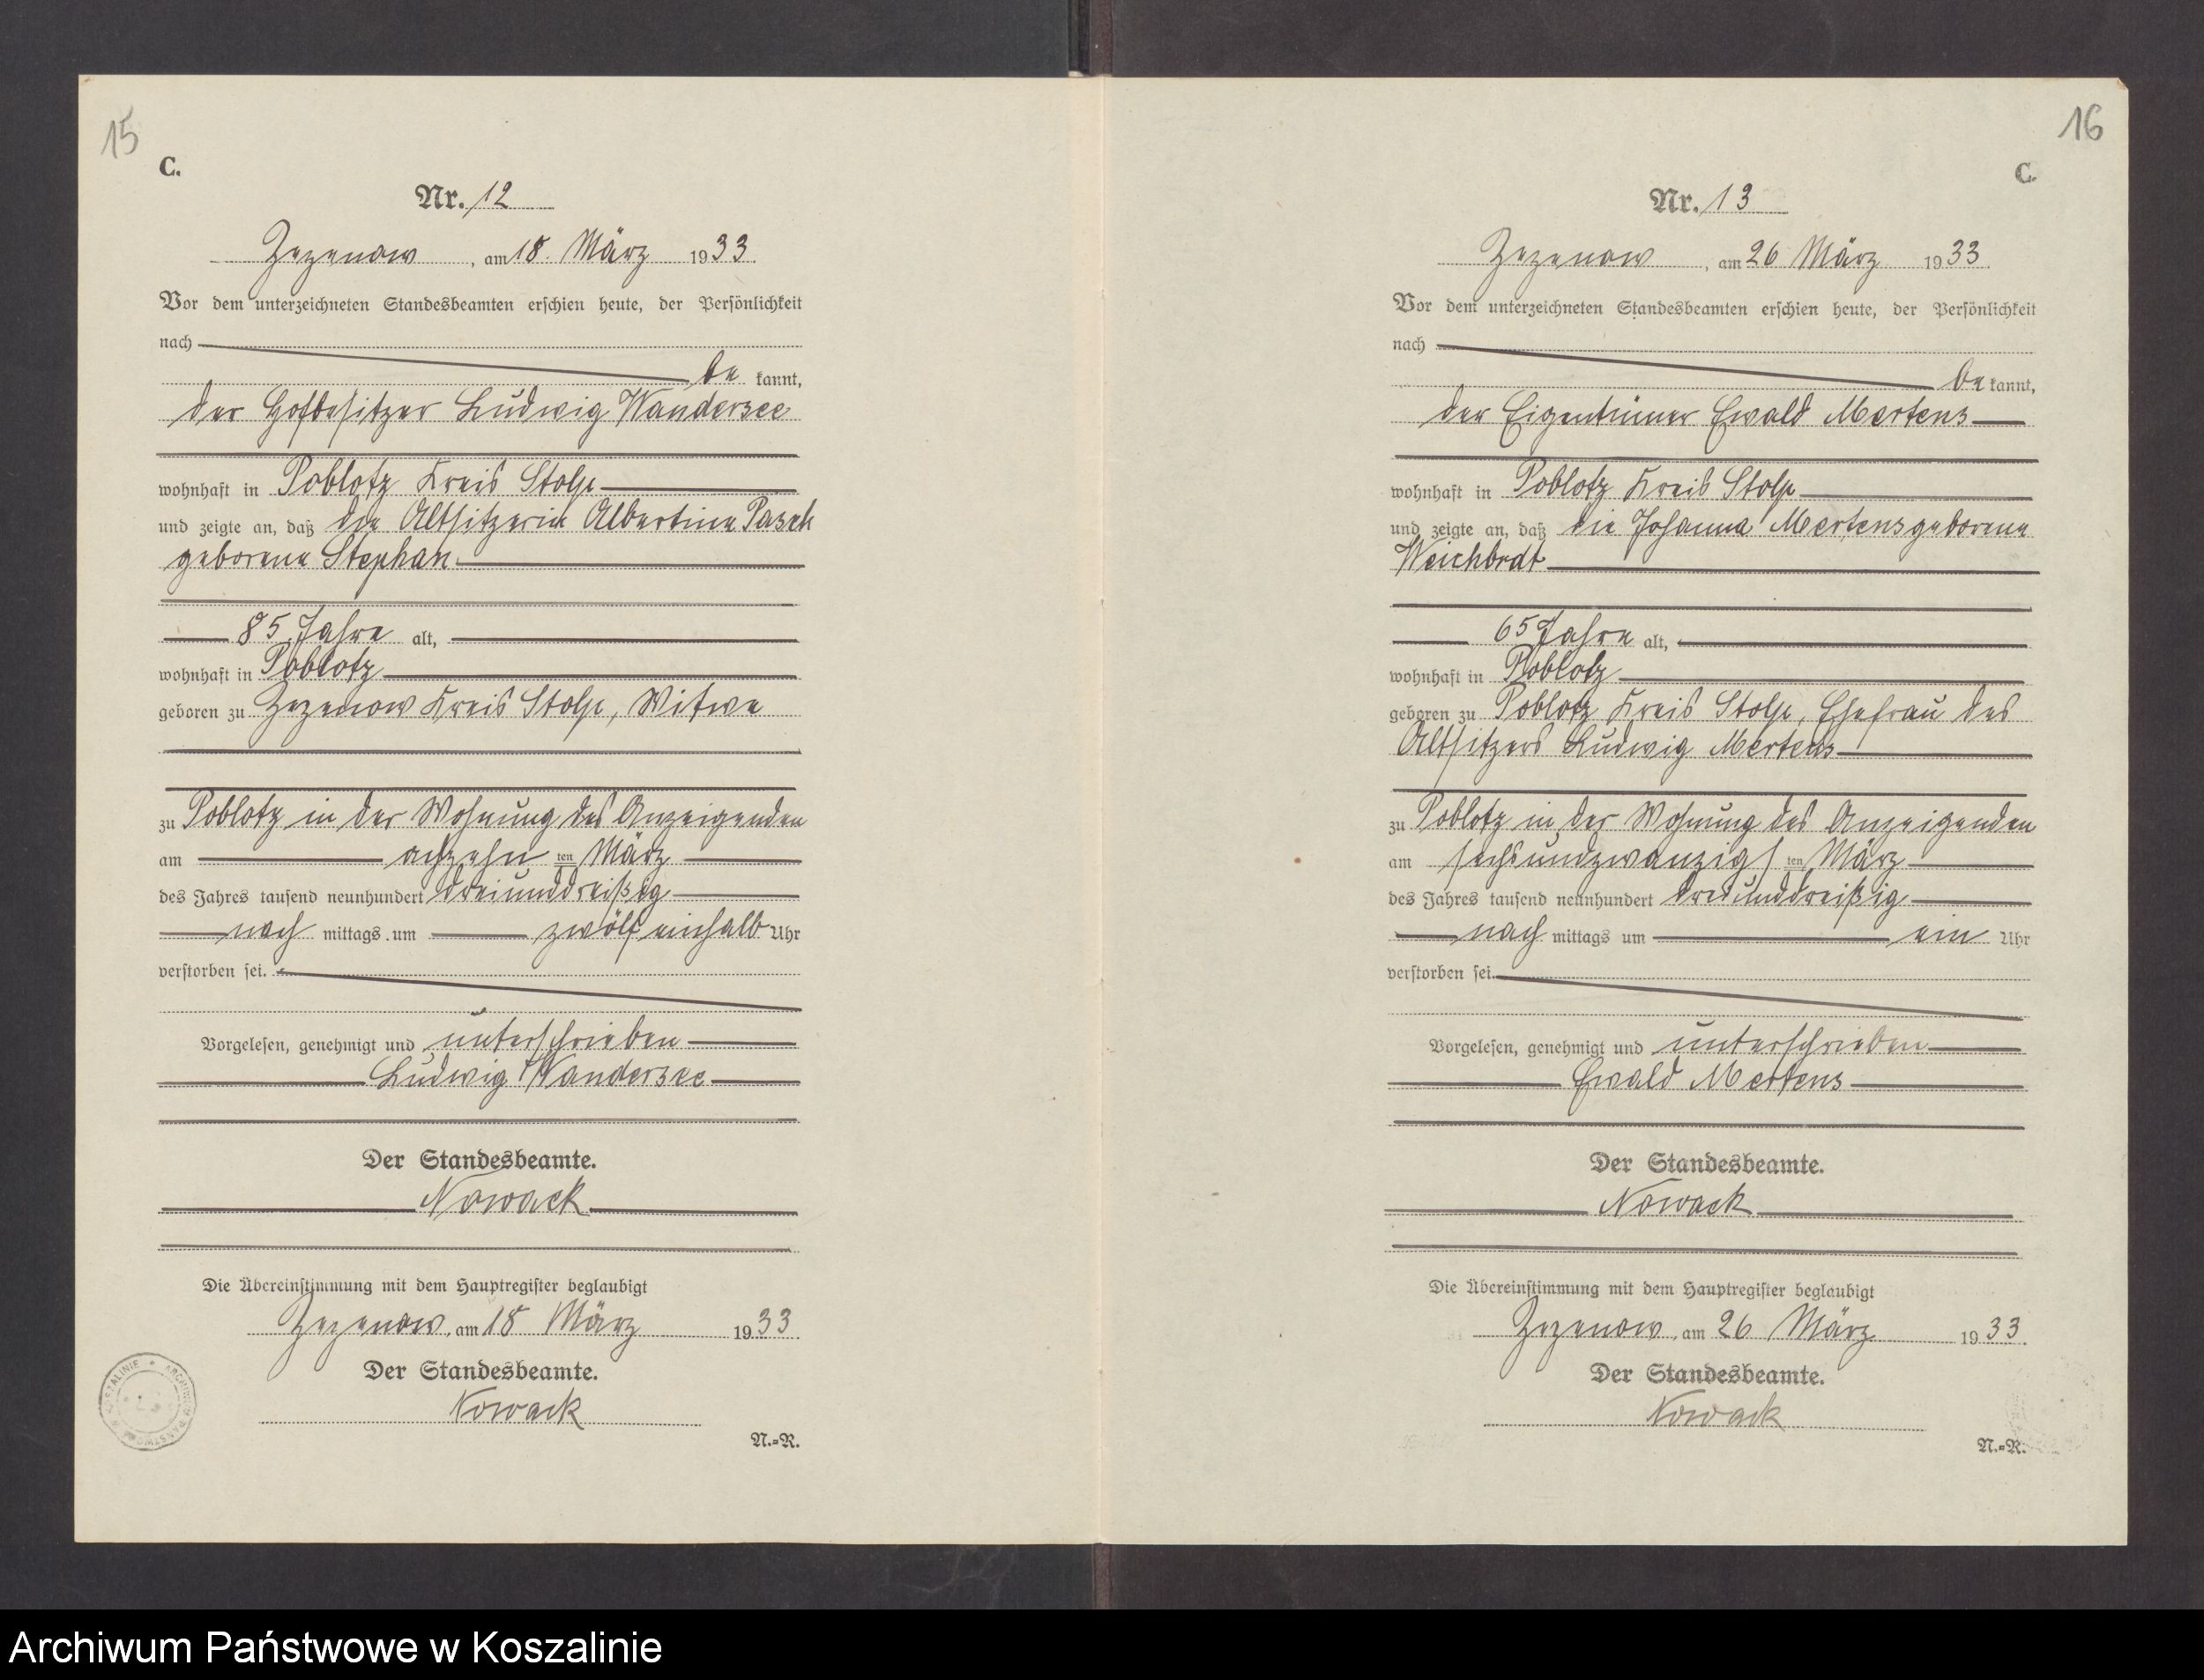 15
C.
Nr. 12
Zezenow, am 18. März 1933.
Vor dem unterzeichneten Standesbeamten erschien heute, der Persönlichkeit
nach
be kannt,
der Hofbesitzer Ludwig Wandersee
wohnhaft in Poblotz Kreis Stolp
und zeigte an, daß die Altsitzerin Albertine Pasch
geborene Stephan
85 Jahre alt,
wohnhaft in Poblotz
geboren zu Zezenow Kreis Stolp, Witwe
zu Poblotz in der Wohnung des Anzeigenden
am achzehn ten März
des Jahres tausend neunhundert dreiunddreißig
nach mittags um zwölf einhalb Uhr
verstorben sei.
Vorgelesen, genehmigt und unterschrieben
Ludwig Wandersee
Der Standesbeamte.
Nowack
Die Übereinstimmung mit dem Hauptregister beglaubigt
Zezenow, am 18 März 1933.
Der Standesbeamte.
Nowack
N.=R.
16
C.
Nr. 13
Zezenow, am 26 März 1933.
Vor dem unterzeichneten Standesbeamten erschien heute, der Persönlichkeit
nach
be kannt,
der Eigentümer Ewald Mertens
wohnhaft in Poblotz Kreis Stolp
und zeigte an, daß die Johanna Mertens geborene
Weichbrdt
65 Jahre alt,
wohnhaft in Poblotz
geboren zu Poblotz Kreis Stolp, Ehefrau des
Altsitzers Ludwig Mertens
zu Poblotz in der Wohnung des Anzeigenden
am sechsundzwanzigs ten März
des Jahres tausend neunhundert dreiunddreißig
nach mittags um ein Uhr
verstorben sei.
Vorgelesen, genehmigt und unterschrieben
Ewald Mertens
Der Standesbeamte.
Nowack
Die Übereinstimmung mit dem Hauptregister beglaubigt
Zezenow, am 26 März 1933.
Der Standesbeamte.
Nowack
N.=R.
Archiwum Państwowe w Koszalinie